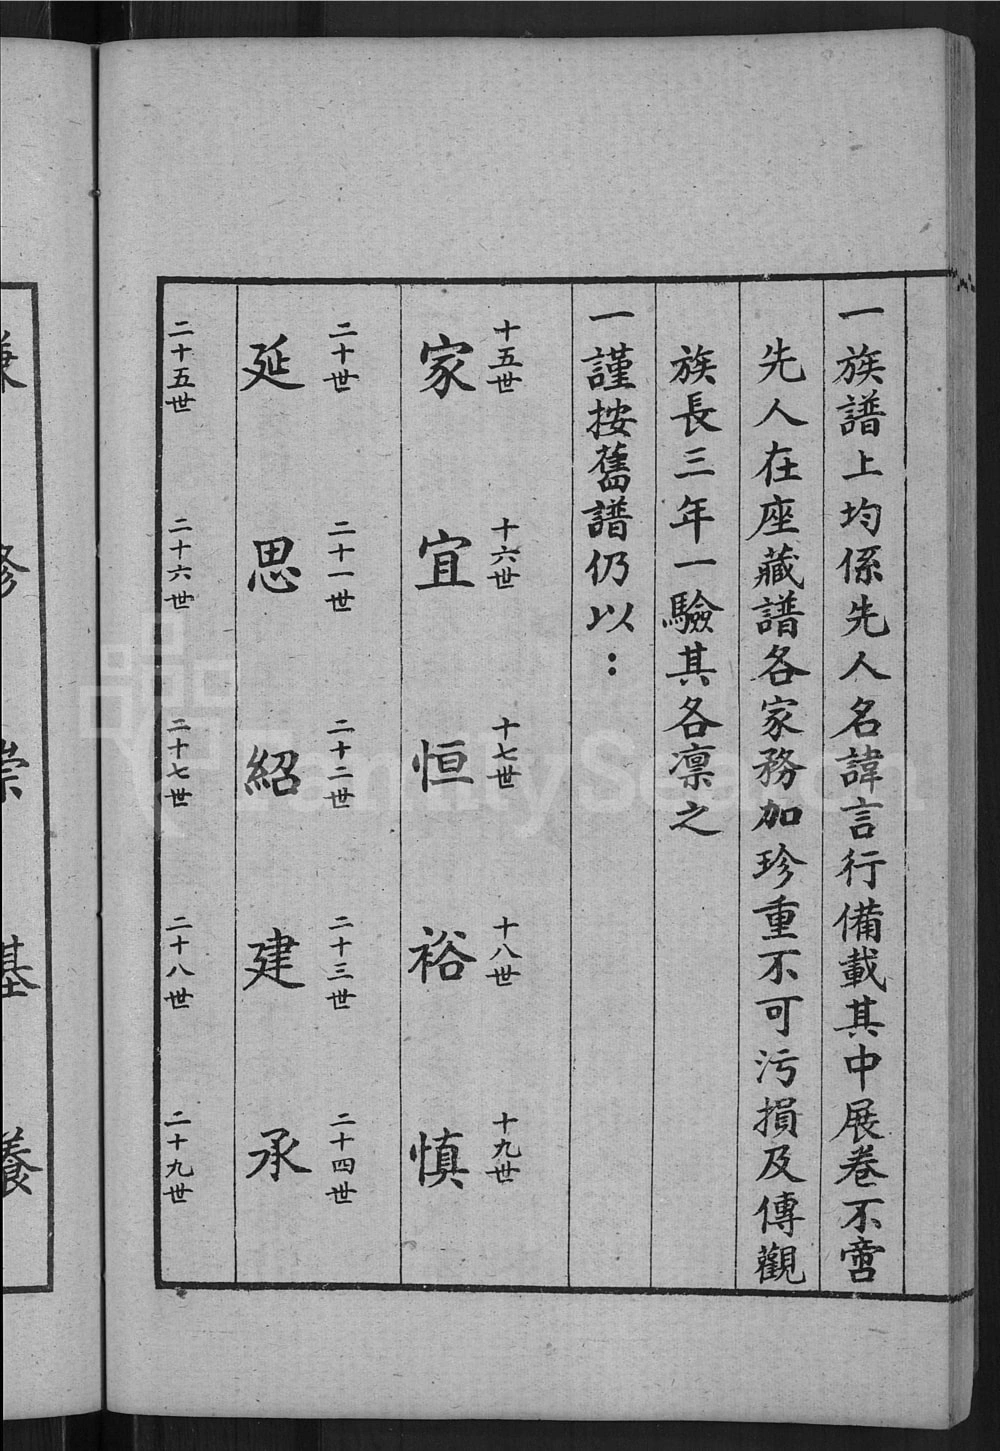 一族譜上均係先人名諱言行備載其中展卷不啻
先人在座藏譜各家務加珍重不可污損及傳觀
族長三年一驗其各凛之
一謹按舊譜仍以：
十五世 十六世 十七世 十八世 十九世
家 宜 恒 裕 慎
二十世 二十一世 二十二世 二十三世 二十四世
延 思 紹 建 承
二十五世 二十六世 二十七世 二十八世 二十九世
基
養
FamilySearch